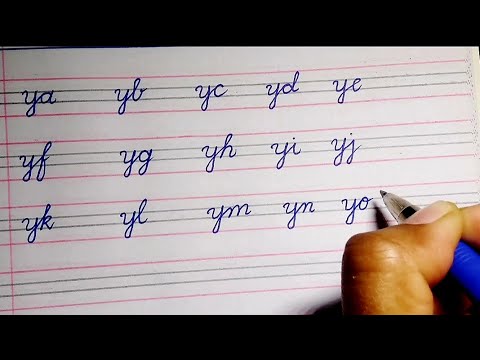 ya yb yc yd ye
yf yg yh yi yj
yk yl ym yn yo